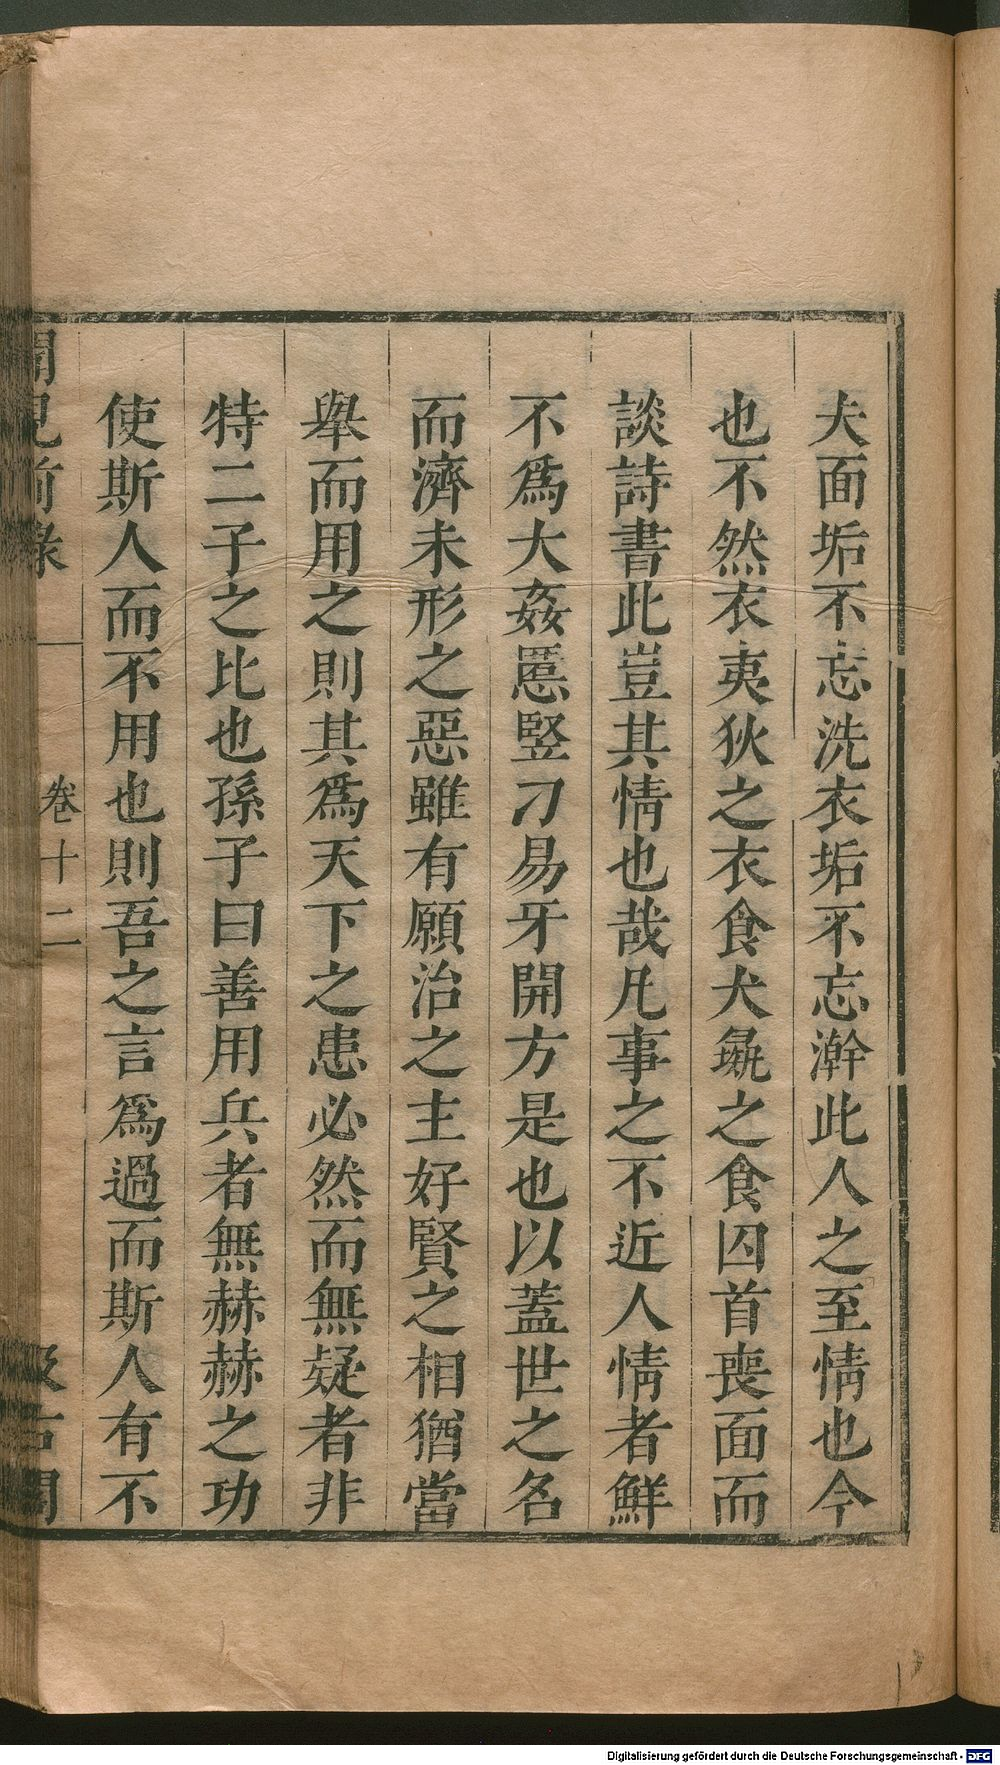 夫面垢不忘洗衣垢不忘澣此人之至情也今
也不然衣夷狄之衣食犬彘之食囚首喪面而
談詩書此豈其情也哉凡事之不近人情者鮮
不爲大姦慝竪刁易牙開方是也以蓋世之名
而濟未形之惡雖有願治之主好賢之相猶當
舉而用之則其爲天下之患必然而無疑者非
特二子之比也孫子曰善用兵者無赫赫之功
使斯人而不用也則吾之言爲過而斯人有不
聞見前錄 卷十二 汲古閣
Digitalisierung gefördert durch die Deutsche Forschungsgemeinschaft - DFG